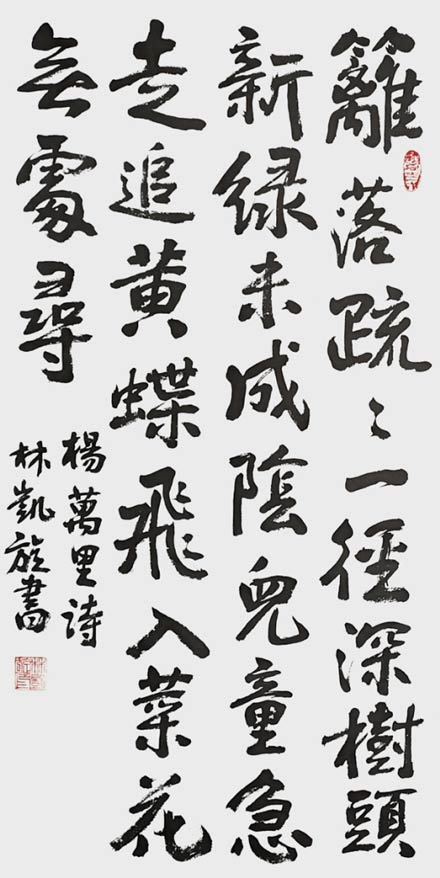 籬落疏〻一徑深樹頭
新緑未成陰兒童急
走追黃蝶飛入菜花
無處尋
楊萬里詩
林凱旋書